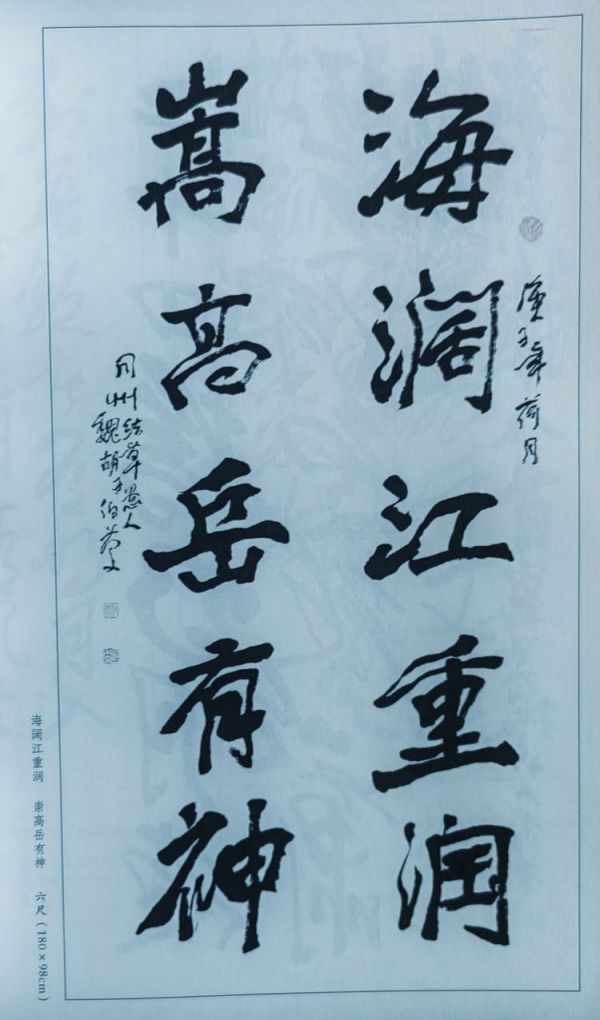 庚子年荷月
海濶江重润
嵩高岳有神
同州结草愚人
魏胡子伯
海阔江重润　崇高岳有神　六尺（180×98cm）